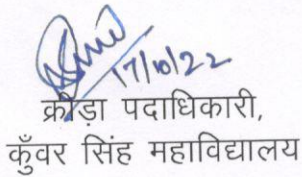 17/10/22
क्रीड़ा पदाधिकारी,
कुँवर सिंह महाविद्यालय